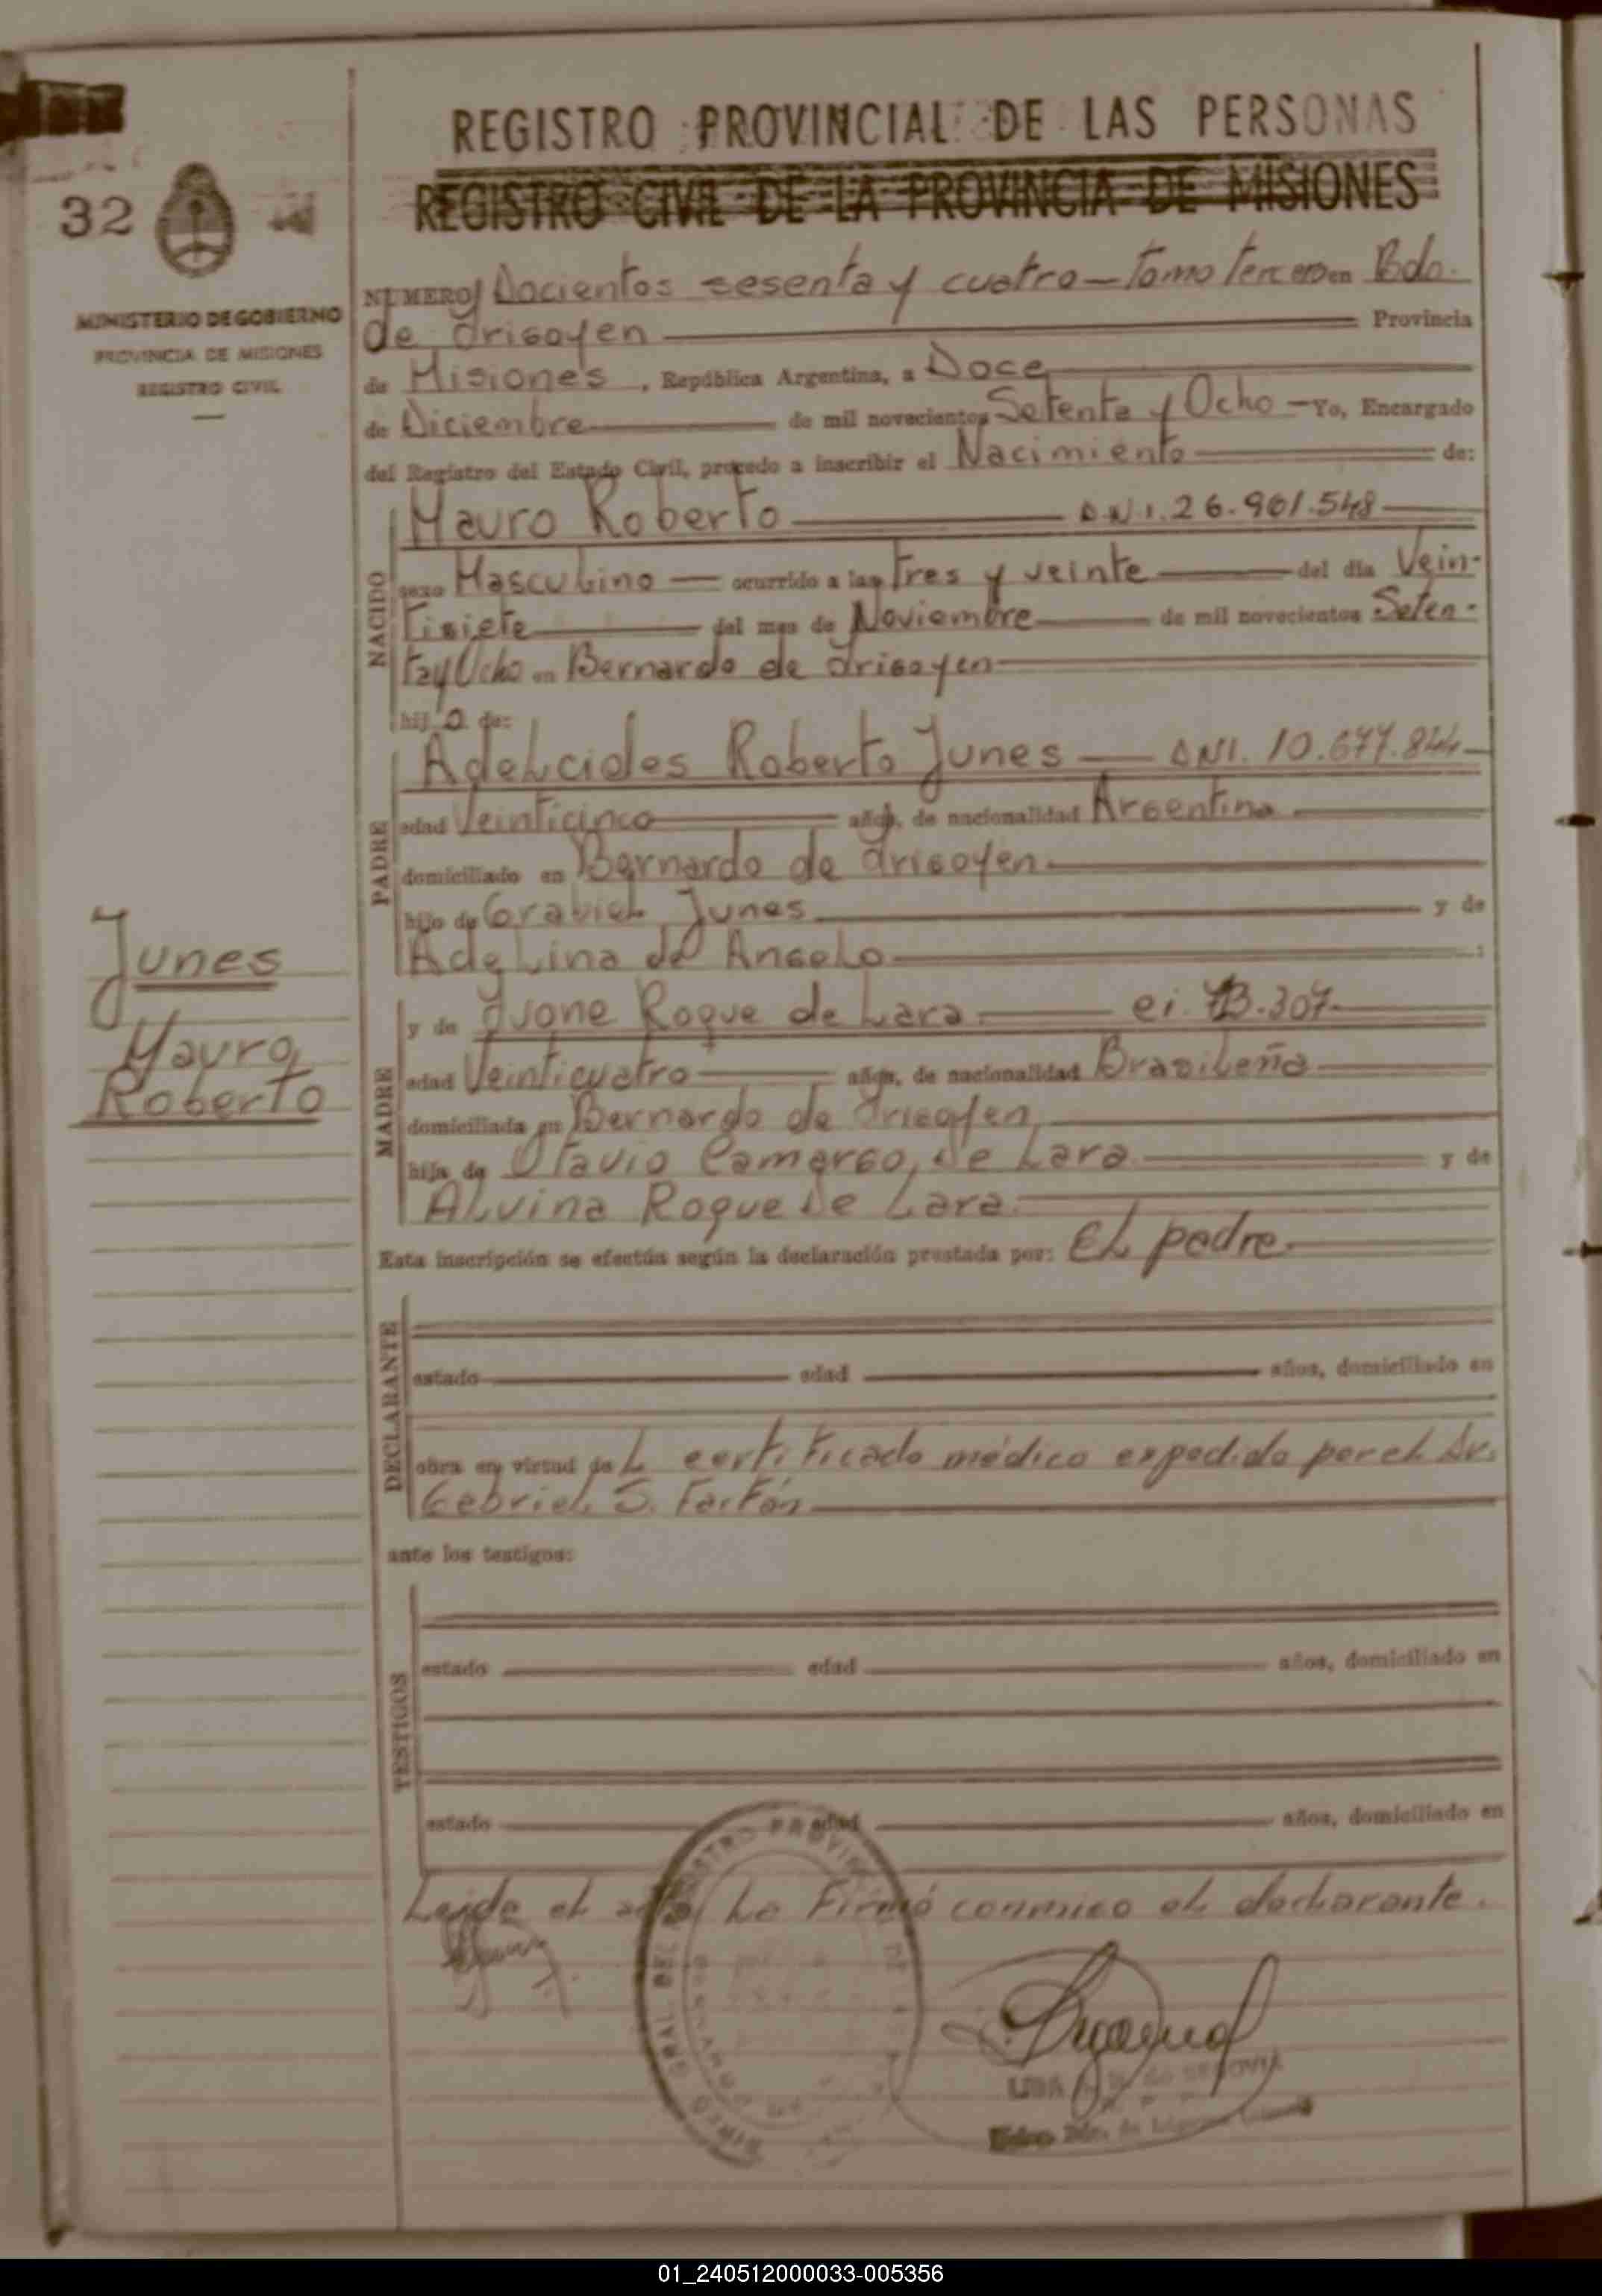 REGISTRO PROVINCIAL DE LAS PERSONAS
REGISTRO CIVIL DE LA PROVINCIA DE MISIONES
32
MINISTERIO DE GOBIERNO
PROVINCIA DE MISIONES
REGISTRO CIVIL
NUMERO Docientos sesenta y cuatro — Tomo Tercero en Bdo.
de Irigoyen Provincia
de Misiones, República Argentina, a Doce
de Diciembre de mil novecientos Setenta y Ocho — Yo, Encargado
del Registro del Estado Civil, procedo a inscribir el Nacimiento de:
Mauro Roberto D.N.I. 26.961.548
NACIDO
sexo Masculino — ocurrido a las Tres y veinte del día Vein-
tisiete del mes de Noviembre de mil novecientos Seten-
ta y Ocho en Bernardo de Irigoyen
hij o de:
Adelcides Roberto Junes — DNI. 10.677.844
PADRE
edad Veinticinco años, de nacionalidad Argentina
domiciliado en Bernardo de Irigoyen.
hijo de Grabiel Junes y de
Adelina de Angelo :
y de Ivone Roque de Lara ei. 73.307
MADRE
edad Veinticuatro años, de nacionalidad Brasileña
domiciliada en Bernardo de Irigoyen
hija de Otavio Camargo, de Lara y de
Alvina Roque de Lara.
Junes
Mauro
Roberto
Esta inscripción se efectúa según la declaración prestada por: El padre.
DECLARANTE
estado edad años, domiciliado en
obra en virtud de l certificado médico expedido por el Dr.
Gabriel S. Farfán
ante los testigos:
TESTIGOS
estado edad años, domiciliado en
estado edad años, domiciliado en
Leida el acta La Firmó conmigo el declarante.
01_240512000033-005356